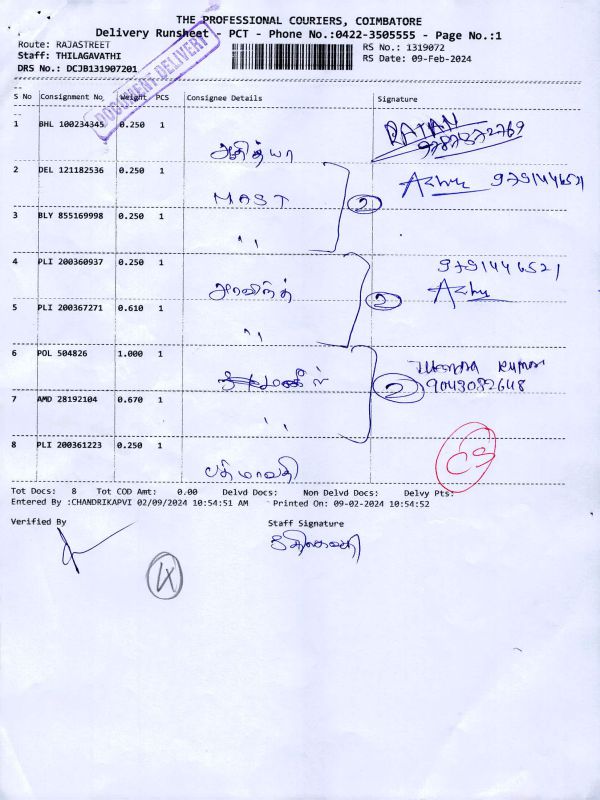 THE PROFESSIONAL COURIERS, COIMBATORE
Delivery Runsheet - PCT - Phone No.:0422-3505555 - Page No.:1
Route: RAJASTREET
RS No.: 1319072
Staff: THILAGAVATHI
RS Date: 09-Feb-2024
DRS No.: DCJB131907201
DOCUMENT DELIVERY
S No Consignment No Weight PCS Consignee Details Signature
1 BHL 100234345 0.250 1
RATAN
ஆதித்யா
2 DEL 121182536 0.250 1
Ashu 9791446521
MAST
2
3 BLY 855169998 0.250 1
,,
4 PLI 200360937 0.250 1
9791446521
அரவிந்த்
Ashu
2
5 PLI 200367271 0.610 1
,,
6 POL 504826 1.000 1
Kumar
9043082648
2
7 AMD 28192104 0.670 1
,,
8 PLI 200361223 0.250 1
பத்மாவதி
Tot Docs: 8 Tot COD Amt: 0.00 Delvd Docs: Non Delvd Docs: Delvy Pts:
Entered By :CHANDRIKAPVI 02/09/2024 10:54:51 AM Printed On: 09-02-2024 10:54:52
Verified By
Staff Signature
திலகவதி